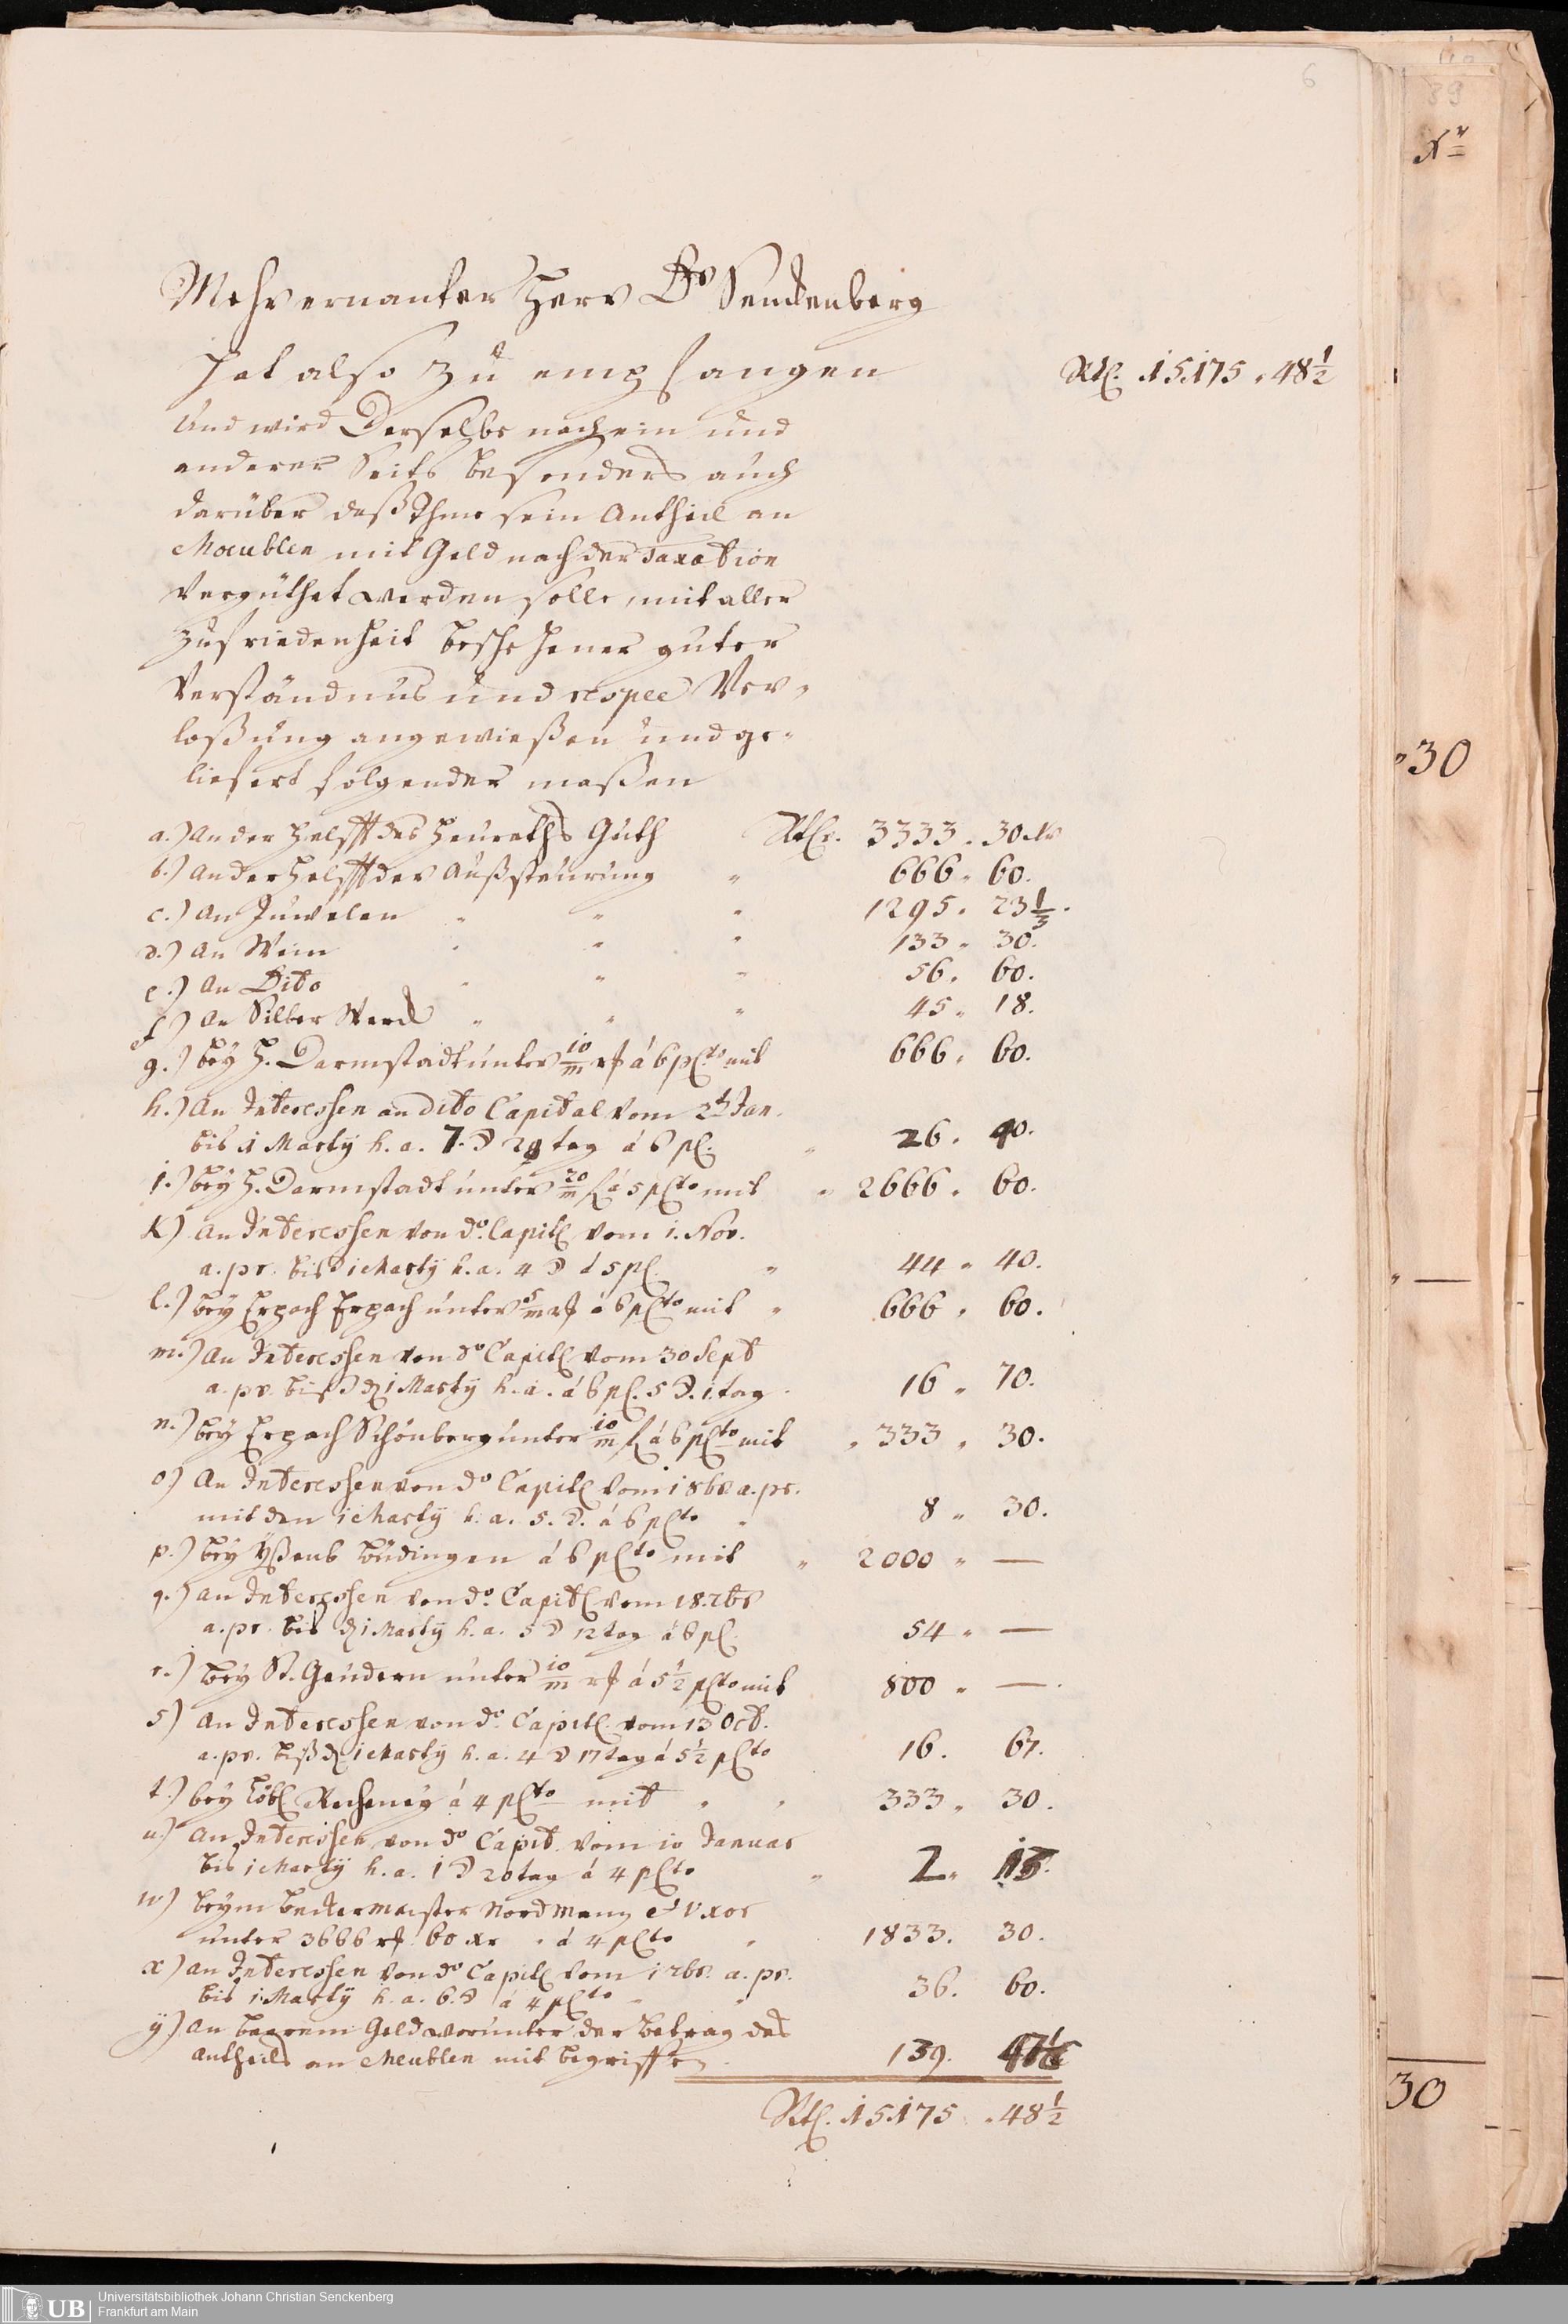 6
Mehrernanter Herr Dr Senckenberg
hat also zu empfangen Rtl. 15175 . 48½
Und wird Derselbe nach ein und
anderer Seits besonders auch
darüber daß Ihme sein Antheil an
Moeublen mit Geld nach der Taxation
Vergüthet werden solle, mit aller
Zufriedenheit beschehener guter
Verständnus und respee Ver-
loßung angewießen und ge-
liefert folgender maßen
a.) An der Helfft des Heuraths Guth Rtlr. 3333 . 30 Xr
b.) An der Helfft der Außsteurung " 666 . 60.
c.) An Juwelen " " " 1295 . 23⅓.
d.) An Wein " " " 133 . 30.
e.) An Dito " " " 56 . 60.
f.) An Silber Werck " " " 45 . 18.
g.) bey H. Darmstadt unter 10/m rf á 6 pCto mit 666 . 60.
h.) An Interessen an dito Capital vom 2t Jan.
bis 1 Martÿ h. a. 29 tag á 6 pC. " 26 . 40.
i.) bey H. Darmstadt unter 20/m f á 5 pCto mit " 2666 . 60.
K) An Interessen von do. Capitl vom 1. Nov.
a. pr. bis 1 Martÿ h. a. 4 á 5 pC. " 44 . 40.
l.) bey Erpach Erpach unter 5/m rf á 6 pCto mit " 666 . 60.
m.) An Interessen von do Capitl vom 30 Sept
a. pr. biß d 1 Martÿ h. a. á 6 pC. 5 . 1. tag . 16 . 70.
n.) bey Erpach Schönberg unter 10/m f á 6 pCto mit " 333 . 30.
o) An Interessen von do Capitl vom 1 8br a. pr.
mit den 1 Martÿ h. a. 5. á 6 pCto " 8 . 30.
p.) bey Yßenb Büdingen á 6 pCto mit " 2000 . —
q.) an Interessen von do. Capitl vom 18. 7br
a. pr. bis d 1 Martÿ h. a. 5 12 tag á 6 pC. 54 . —
r.) bey St. Geudern unter 10/m rf á 5½ pCto mit 800 . —.
s) An Interessen von do. Capitl. vom 13 Oct.
a. pr. biß d 1 Martÿ h. a. 4 17 tag á 5½ pCto 16 . 67.
t.) bey löbl Recheneÿ á 4 pCto mit " " 333 . 30.
u) An Interessen von do Capit. vom 10 Januar
bis 1 Martÿ h. a. 1 20 tag á 4 pCto " 2 .
w) beym beckermeister Nordmann et Uxor
unter 3666 rf. 60 xr . á 4 pCto " 1833 . 30.
x) an Interessen von do Capitl vom 1 7br. a. pr.
bis 1. Martÿ h. a. 6. á 4 pCto " " 36 . 60.
ÿ) An baarem Geld worunter der betrag des
Antheils an Meublen mit begriffen . 139 .
Rtl. 15175 . 48½
89
Xr
" 30
" —
30
UB
Universitätsbibliothek Johann Christian Senckenberg
Frankfurt am Main